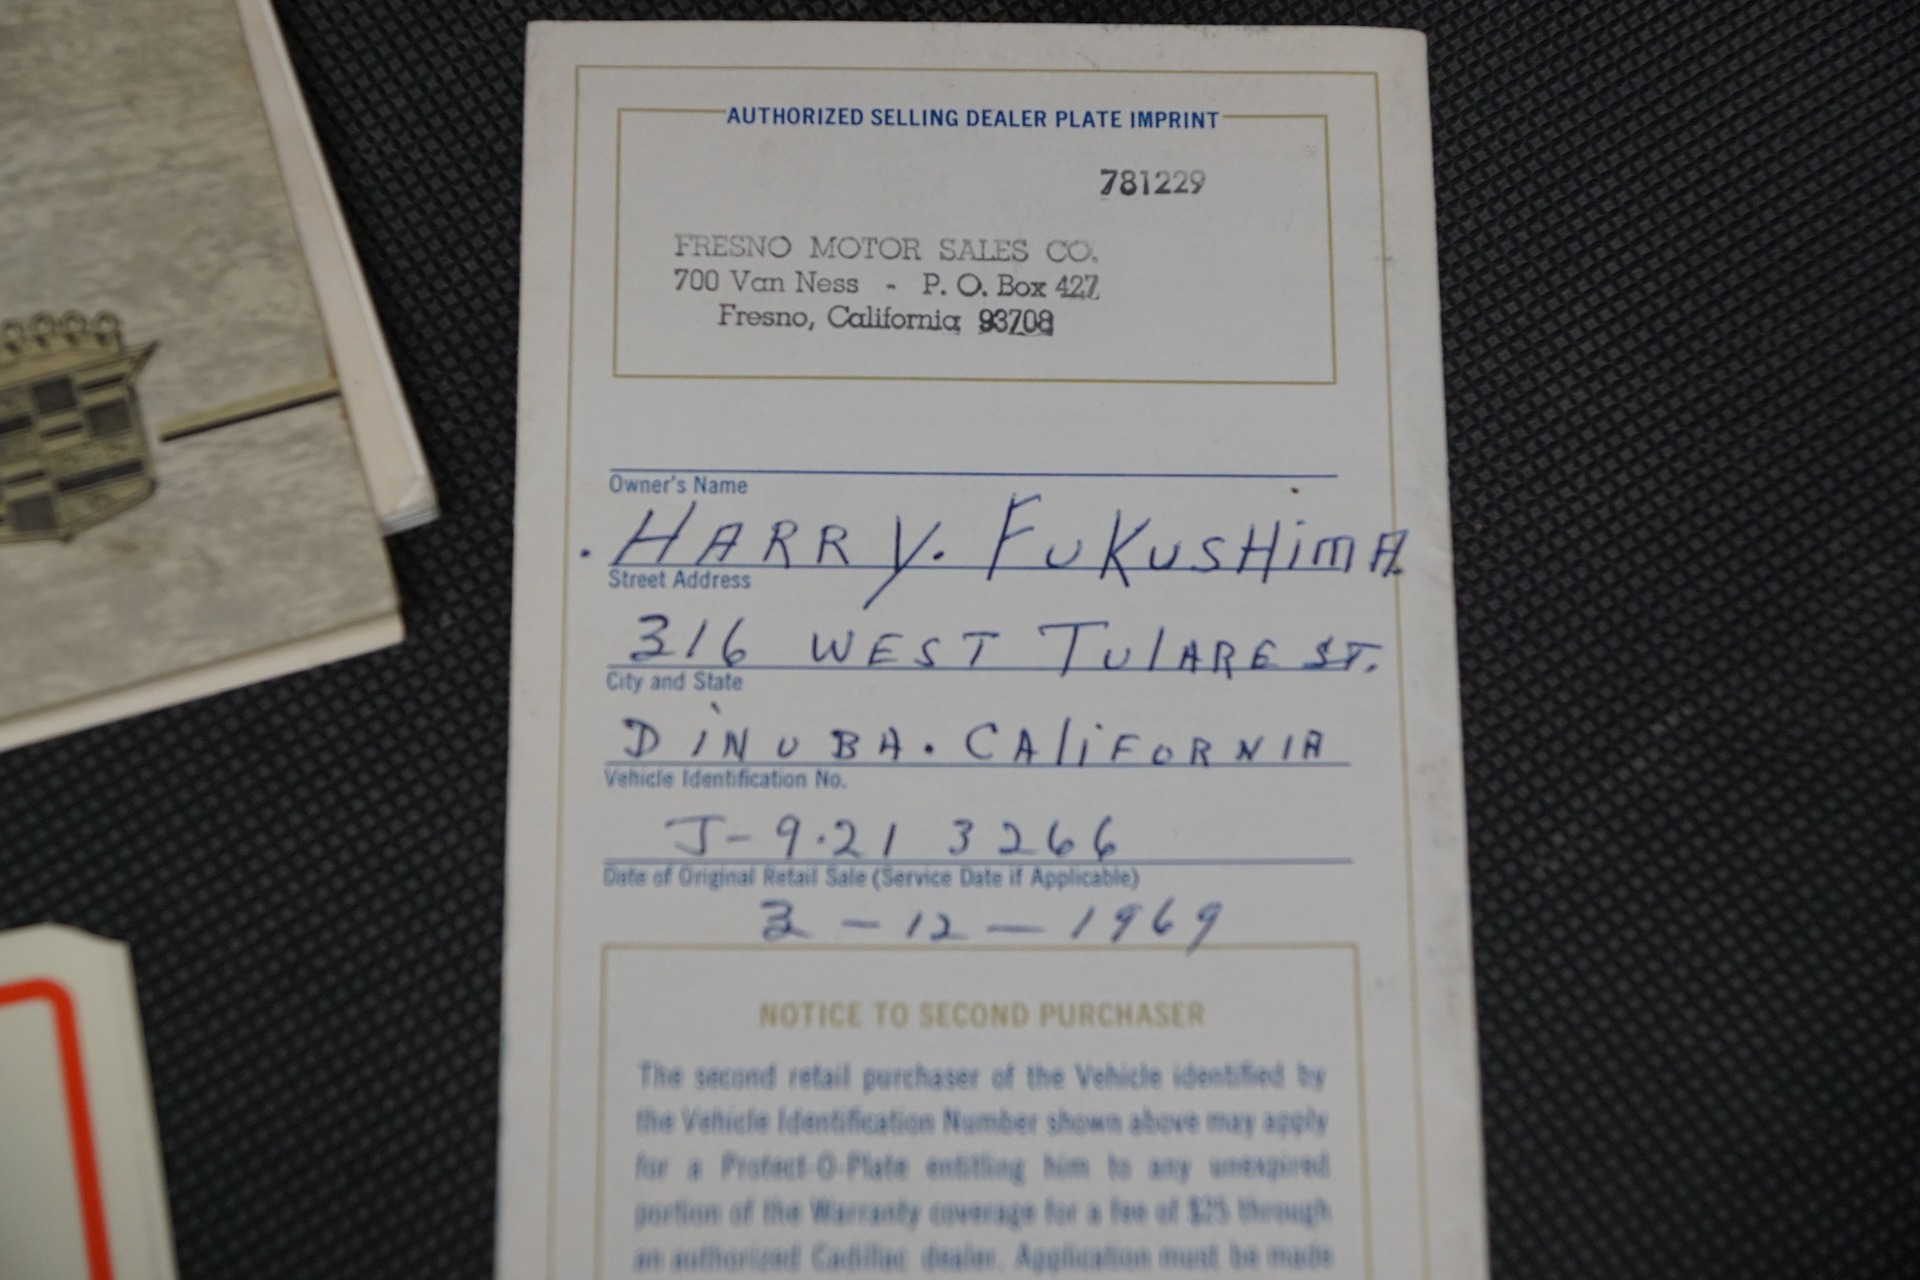 AUTHORIZED SELLING DEALER PLATE IMPRINT
781229
FRESNO MOTOR SALES CO.
700 Van Ness - P. O. Box 427
Fresno, California 93708
Owner's Name
. HARRY. FUKUSHiMA.
Street Address
316 WEST TUlARE ST.
City and State
DiNUBA. CAliFORNIA
Vehicle Identification No.
J-9.21 3266
Date of Original Retail Sale (Service Date if Applicable)
3 - 12 - 1969
NOTICE TO SECOND PURCHASER
The second retail purchaser of the Vehicle identified by
the Vehicle Identification Number shown above may apply
for a Protect-O-Plate entitling him to any unexpired
portion of the Warranty coverage for a fee of $25 through
an authorized Cadillac dealer. Application must be made